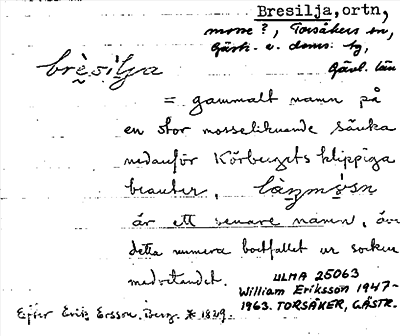 Bresilja, ortn,
mosse?, Torsåkers sn,
Gästr. ö. doms. tg,
Gävl. län
brèsilja
= gammalt namn på
en stor mosseliknande sänka
nedanför Körbergets klippiga
branter.
är ett senare namn, även
detta numera bortfallet ur socken
medvetandet.
ULMA 25063
William Eriksson 1947-
1963. TORSÅKER, GÄSTR.
Efter Erik Ersson, Berg. * 1829.